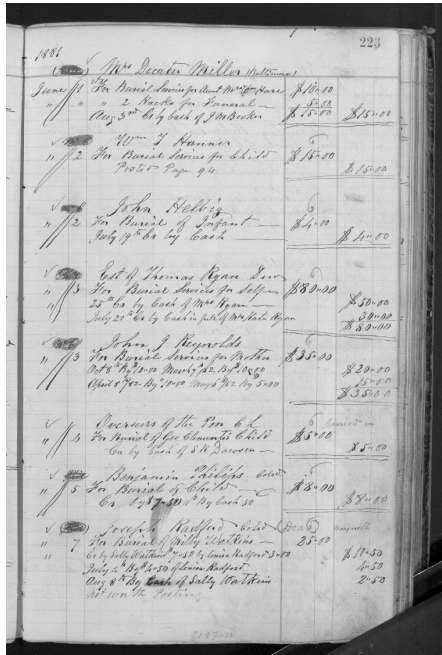 223
1881
Mrs Decater Miller (Baltimore)
June 1 For Burial Services for Aunt Mrs Hare $10.00
" " " 2 Hacks for Funeral — 5.00
Aug 3rd Cr by Cash of J M Booker $15.00 $15.00
Wm T Hanner
" 2 For Burial Services for Child $15.00
Posted Page 94 $15.00
John Helbig
" 2 For Burial of Infant — $4.00
July 19th Cr by Cash $4.00
Est of Thomas Ryan Decd
" 3 For Burial Services for Self — $80.00
25th Cr by Cash of Mrs Ryan — $50.00
July 20th Cr by Cash in full of Mrs Kate Ryan 30.00
$80.00
John J Reynolds
" 3 For Burial Services for Mother $35.00
Oct 8th By 10.00 March 7/82 By 10.00 $20.00
April 5th/82 By 10.00 May 6th/82 By 5.00 15.00
$35.00
Overseers of the Poor C H
" 4 For Burial of Geo Clements Child $5.00
Cr by Cash of S R Dawson — $5.00
Benjamin Philips Cold
" 5 For Burial of Child — $8.00
Cr by $7.50 By Cash 50 $8.00
Joseph Radford Cold (Dead)
" 7 For Burial of Willy Watkins — 25.00
" Cr by Sally Watkins 7.50 by Louisa Radford 3.00 $10.50
July By 4.50 of Louisa Radford 4.50
Aug 8th By Cash of Sally Watkins 2.50
not worth Posting